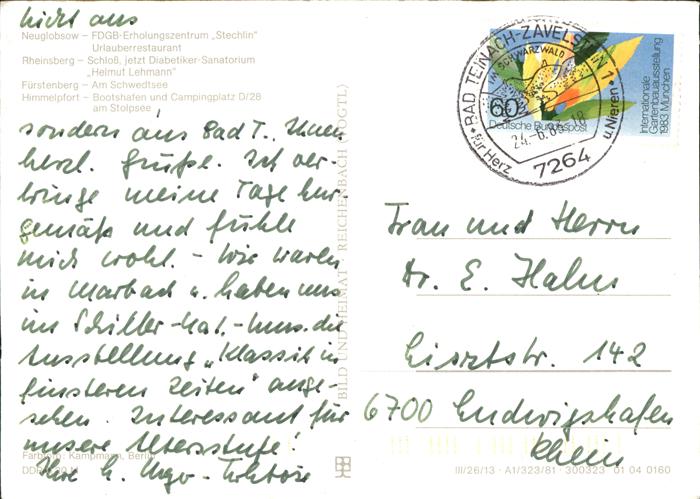 nicht aus
Neuglobsow – FDGB-Erholungszentrum „Stechlin“
Urlauberrestaurant
Rheinsberg – Schloß, jetzt Diabetiker-Sanatorium
„Helmut Lehmann“
Fürstenberg – Am Schwedtsee
Himmelpfort – Bootshafen und Campingplatz D/28
am Stolpsee
sondern aus Bad T., Ihnen
herzl. Grüße. Ich ver-
bringe meine Tage kur-
gemäß und fühle
mich wohl. – Wir waren
in Marbach u. haben uns
im Schiller-Nat.-Mus. die
Ausstellung „Klassik in
finsteren Zeiten“ ange-
sehen. Interessant für
unsere Altersstufe!
Farbfoto: Kampmann, Berlin
Ihre
BILD UND HEIMAT · REICHENBACH (VOGTL)
BAD TEINACH-ZAVELSTEIN 1
SCHWARZWALD
24.-6.83-18
7264
für Herz u. Nieren
60
Deutsche Bundespost
Internationale
Gartenbauausstellung
1983 München
Frau und Herrn
Dr. E. Hahn
Lisztstr. 142
6700 Ludwigshafen
Rhein
III/26/13 · A1/323/81 · 300323 01 04 0160